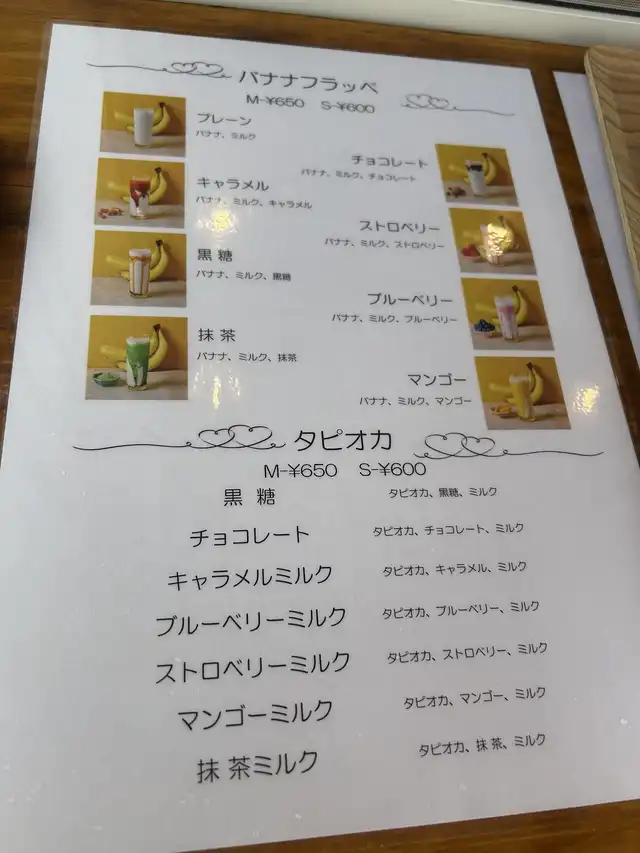 バナナフラッペ
M-¥650 S-¥600
プレーン
バナナ、ミルク
チョコレート
バナナ、ミルク、チョコレート
キャラメル
バナナ、ミルク、キャラメル
ストロベリー
バナナ、ミルク、ストロベリー
黒糖
バナナ、ミルク、黒糖
ブルーベリー
バナナ、ミルク、ブルーベリー
抹茶
バナナ、ミルク、抹茶
マンゴー
バナナ、ミルク、マンゴー
タピオカ
M-¥650 S-¥600
黒糖 タピオカ、黒糖、ミルク
チョコレート タピオカ、チョコレート、ミルク
キャラメルミルク タピオカ、キャラメル、ミルク
ブルーベリーミルク タピオカ、ブルーベリー、ミルク
ストロベリーミルク タピオカ、ストロベリー、ミルク
マンゴーミルク タピオカ、マンゴー、ミルク
抹茶ミルク タピオカ、抹茶、ミルク